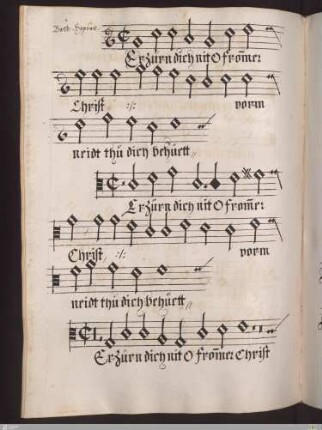 Erzürn dich nit O frome:
Christ :/: vorm
neidt thü dich behüett
Erzürn dich nit O frome:
Christ :/: vorm
neidt thü dich behüett
Erzürn dich nit O frome: Christ